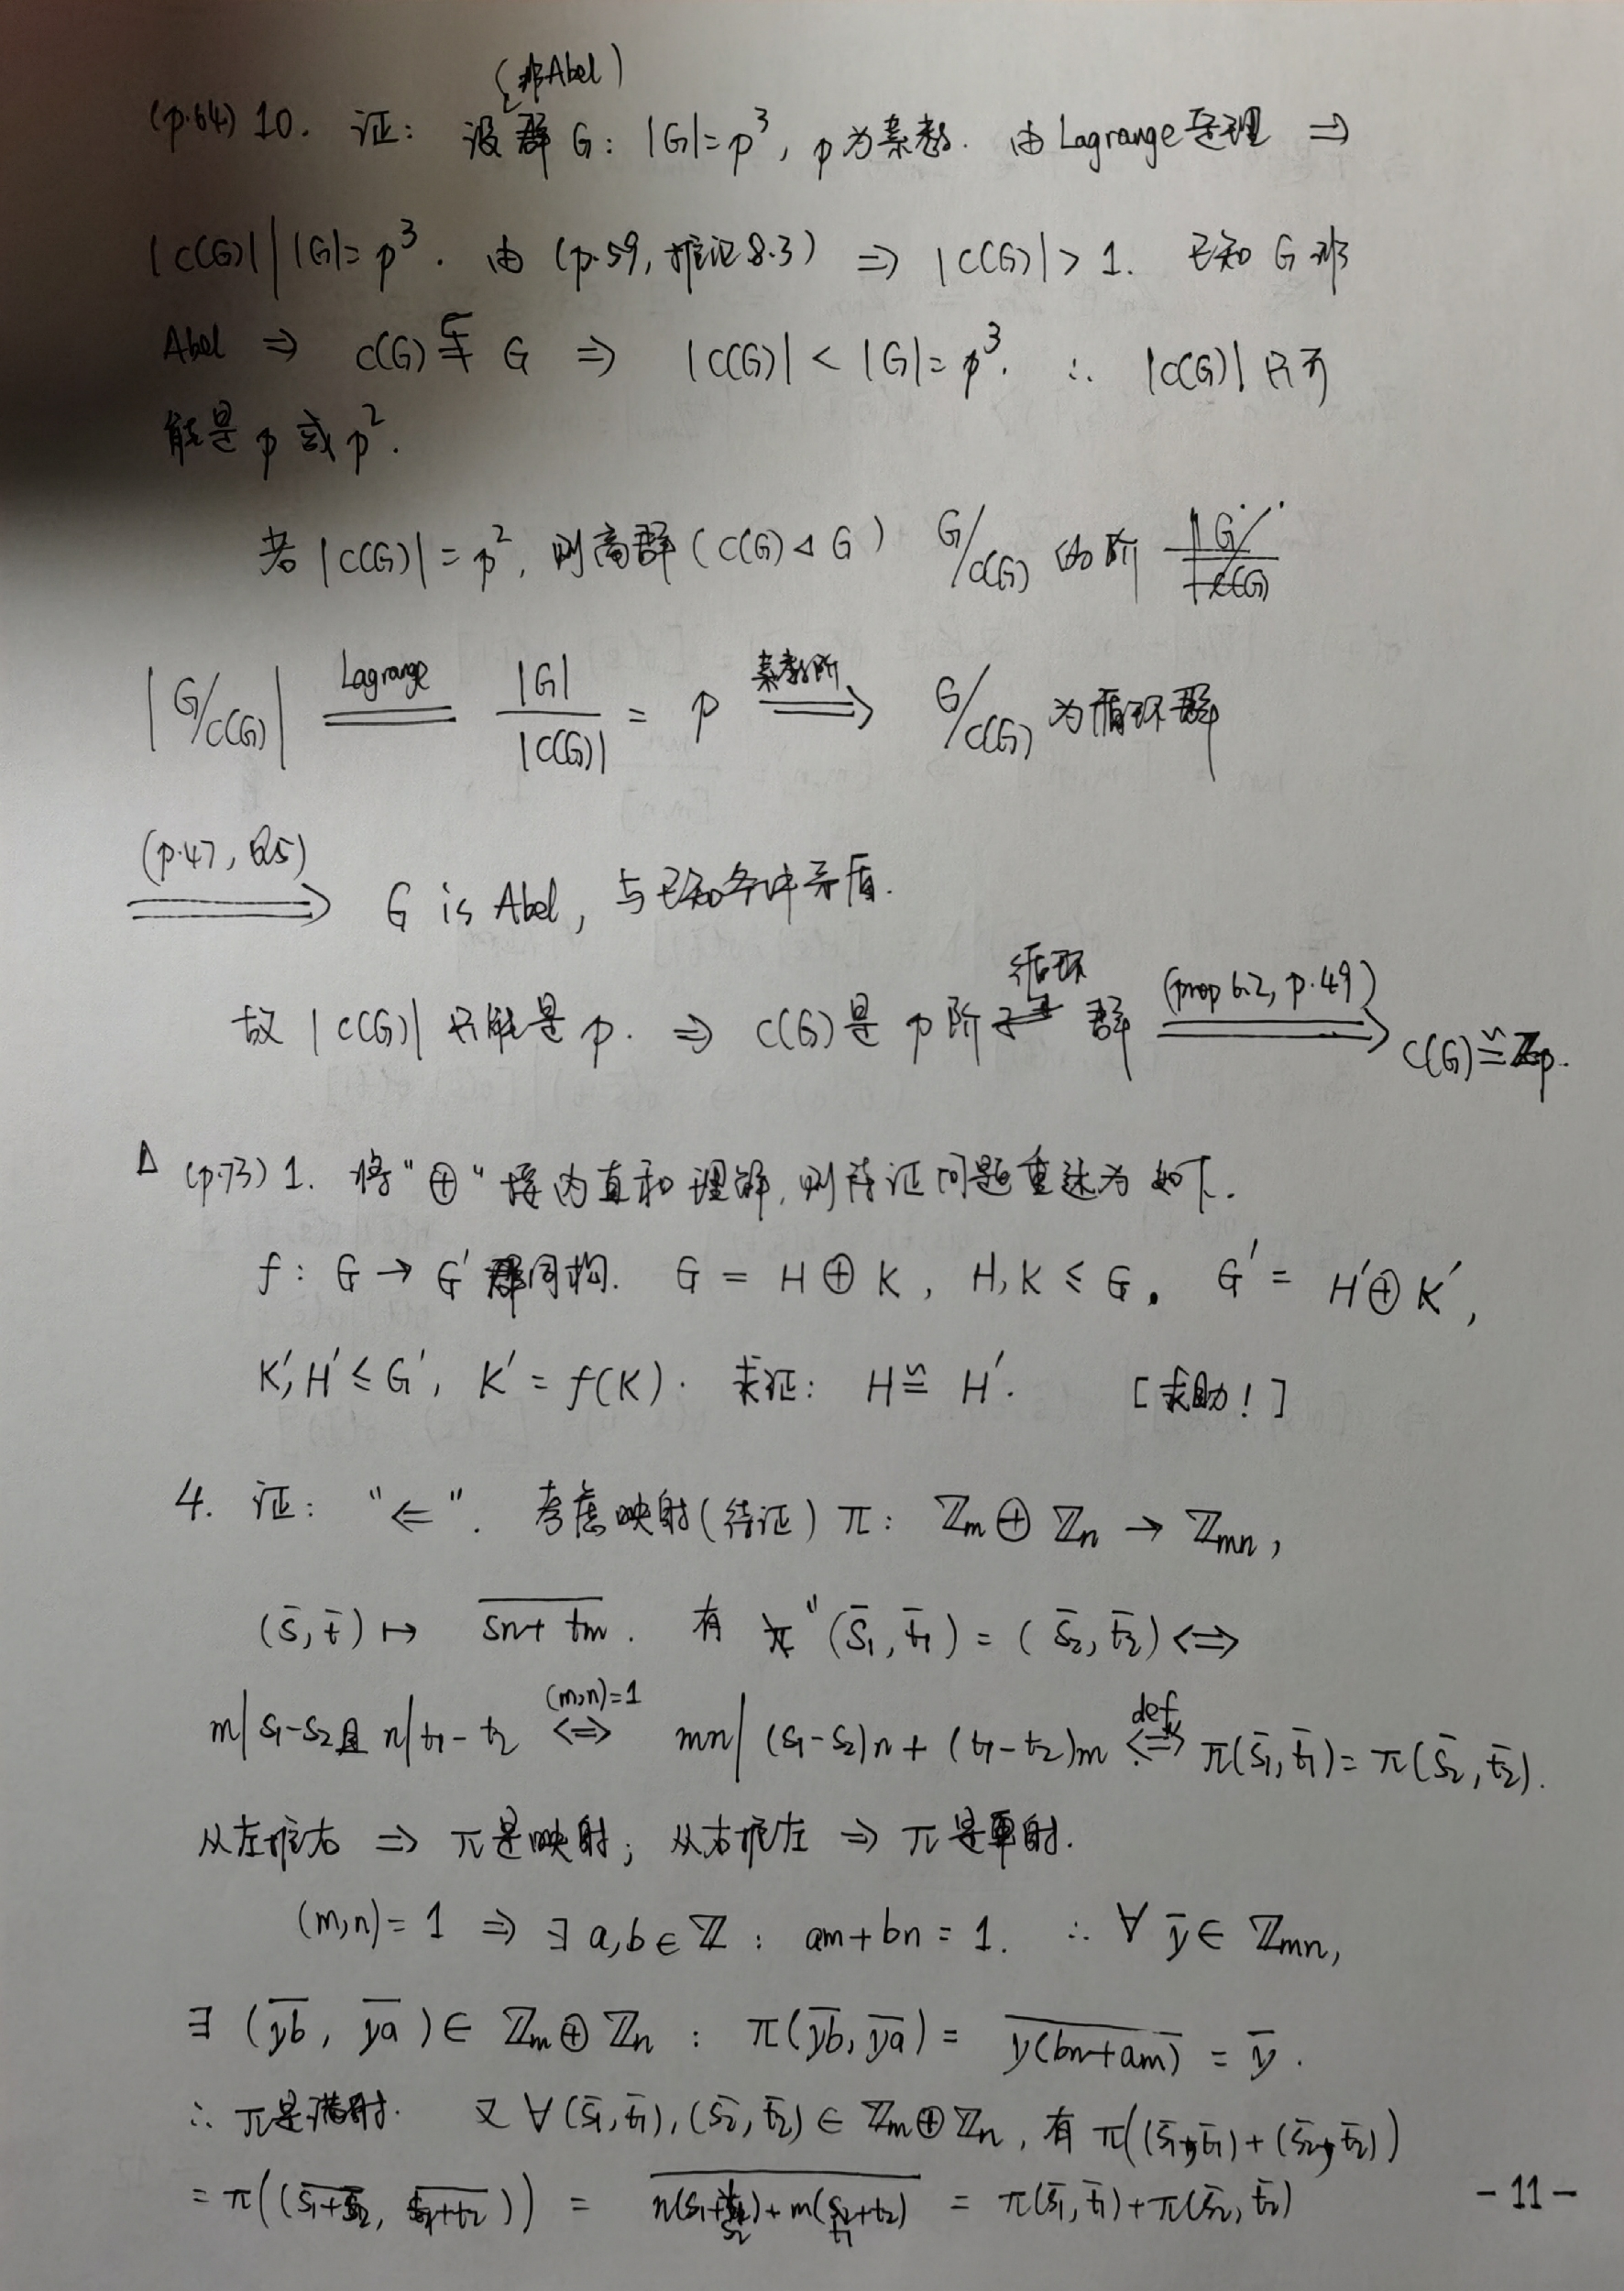 (非Abel)
(p.64) 10. 证: 设群 G: |G|=p³, p为素数. 由Lagrange定理 ⇒
|C(G)| | |G|=p³. 由 (p.59, 推论8.3) ⇒ |C(G)|>1. 已知 G 非
Abel ⇒ C(G)≨G ⇒ |C(G)|<|G|=p³. ∴ |C(G)| 只可
能是 p 或 p².
若 |C(G)|=p², 则商群 (C(G)◁G) G/C(G) 的阶
|G/C(G)| ==Lagrange== |G|/|C(G)| = p ==素数阶==⇒ G/C(G) 为循环群
==(p.47, Q5)==⇒ G is Abel, 与已知条件矛盾.
故 |C(G)| 只能是 p. ⇒ C(G)是 p 阶循环群 ==(prop 6.2, p.49)==⇒ C(G)≅ℤp.
Δ (p.73) 1. 将"⊕"按内直和理解, 则待证问题重述为如下.
f: G→G' 群同构. G = H⊕K, H,K≤G. G' = H'⊕K',
K',H'≤G', K'=f(K). 求证: H≅H'. [求助!]
4. 证: "⇐". 考虑映射(待证) π: ℤm⊕ℤn → ℤmn,
(s̄,t̄) ↦ \overline{sn+tm}. 有 (s̄₁,t̄₁)=(s̄₂,t̄₂) ⇔
m|s₁-s₂且n|t₁-t₂ ⇔^{(m,n)=1} mn|(s₁-s₂)n+(t₁-t₂)m ⇔^{def} π(s̄₁,t̄₁)=π(s̄₂,t̄₂).
从左推右 ⇒ π是映射; 从右推左 ⇒ π是单射.
(m,n)=1 ⇒ ∃a,b∈ℤ: am+bn=1. ∴ ∀ȳ∈ℤmn,
∃(\overline{yb}, \overline{ya})∈ℤm⊕ℤn : π(\overline{yb},\overline{ya}) = \overline{y(bn+am)} = ȳ.
∴ π是满射. 又∀(s̄₁,t̄₁),(s̄₂,t̄₂)∈ℤm⊕ℤn, 有π((s̄₁,t̄₁)+(s̄₂,t̄₂))
=π((\overline{s₁+s₂}, \overline{t₁+t₂})) = \overline{n(s₁+s₂)+m(t₁+t₂)} = π(s̄₁,t̄₁)+π(s̄₂,t̄₂)
-11-